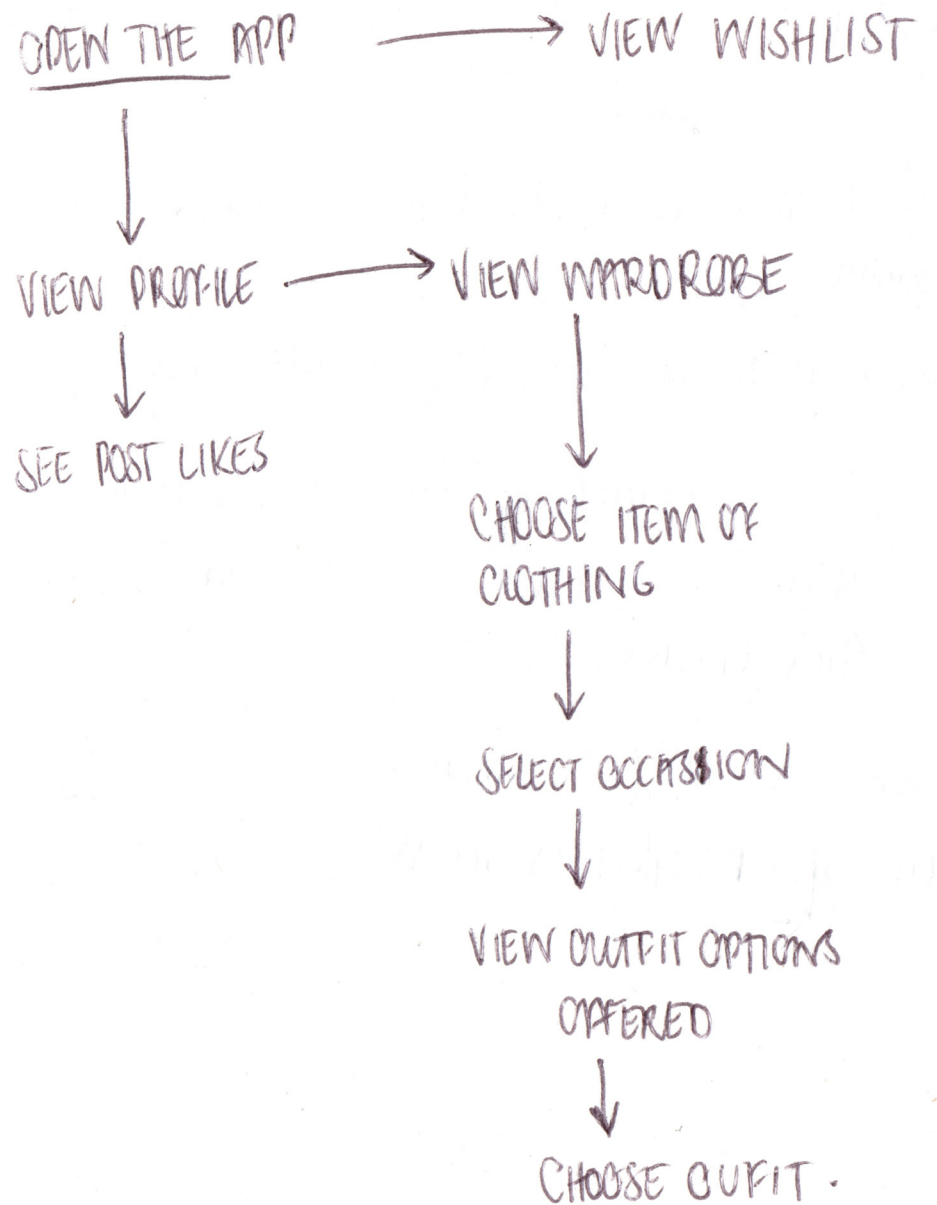 OPEN THE APP
VIEW WISHLIST
VIEW PROFILE
VIEW WARDROBE
SEE POST LIKES
CHOOSE ITEM OF
CLOTHING
SELECT OCCASSION
VIEW OUTFIT OPTIONS
OFFERED
CHOOSE OUFIT.